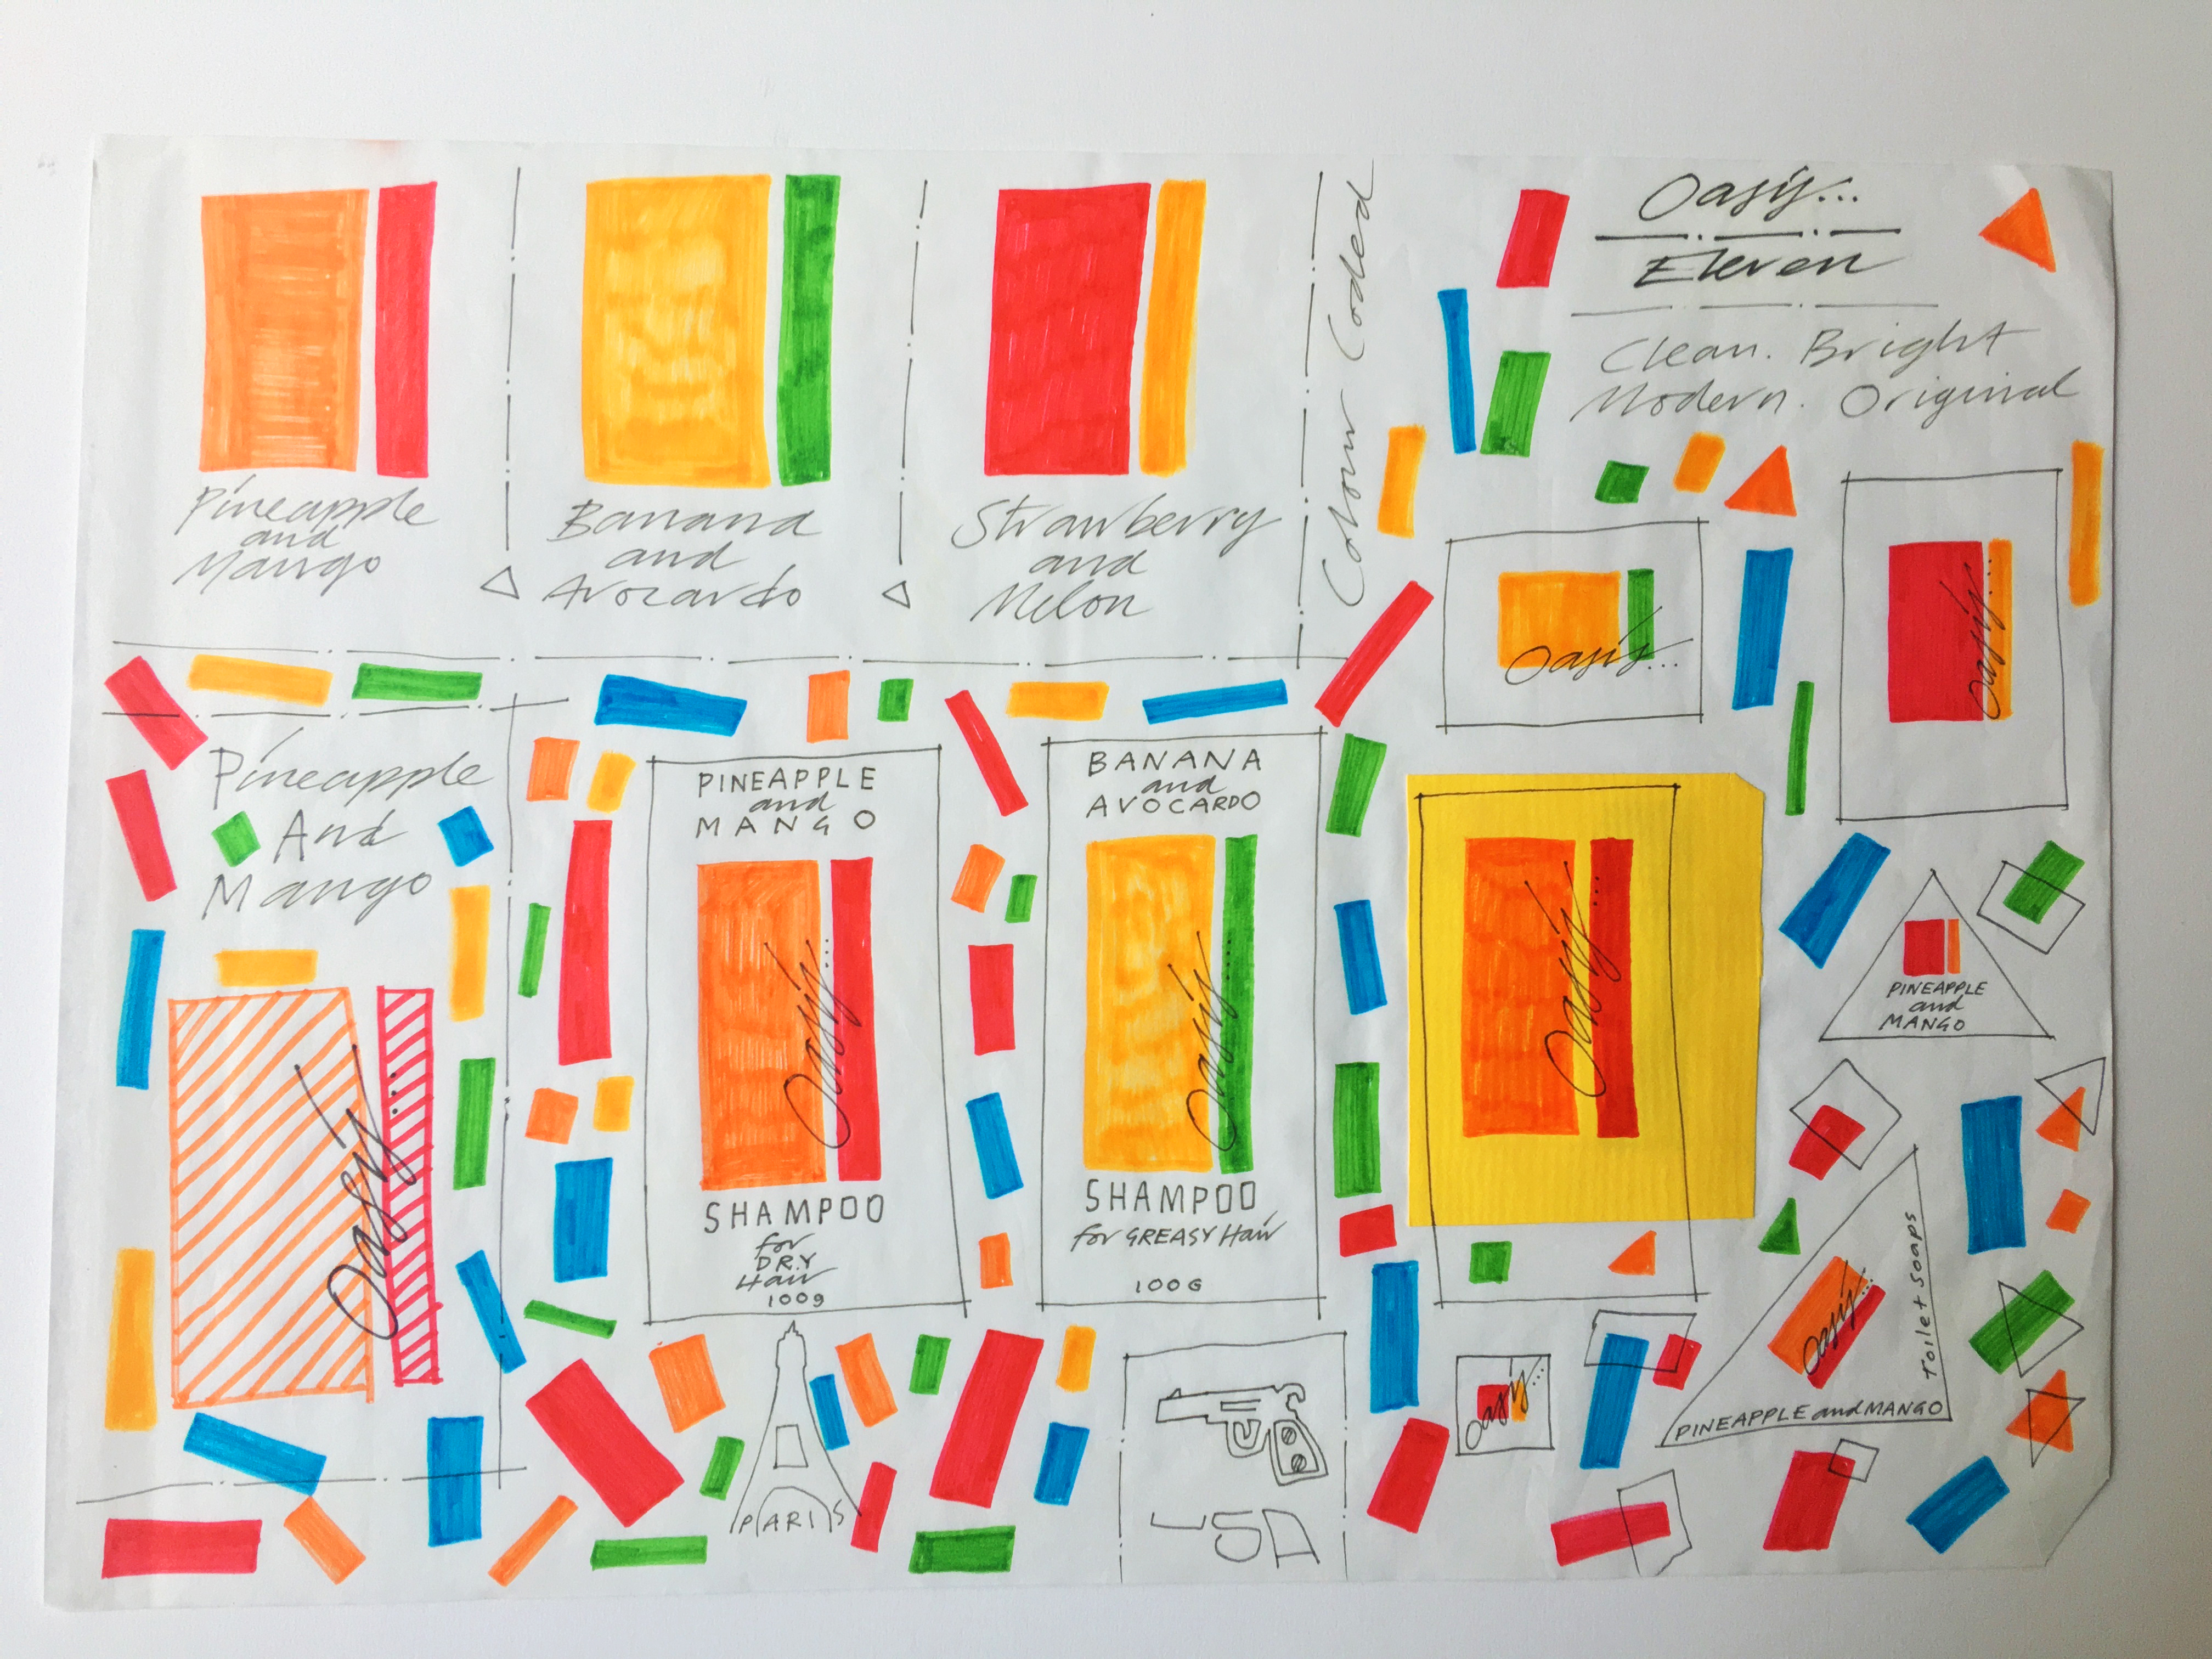 Pineapple
and
Mango
Banana
and
Avocardo
Strawberry
and
Melon
Colour Coded
Oasis...
Eleven
Clean. Bright
Modern. Original
Oasis...
Oasis...
Pineapple
And
Mango
Oasis...
PINEAPPLE
and
MANGO
Oasis...
SHAMPOO
for
DRY
Hair
100g
BANANA
and
AVOCARDO
Oasis...
SHAMPOO
for GREASY Hair
100G
Oasis...
PINEAPPLE
and
MANGO
Oasis...
Toilet Soaps
PINEAPPLE and MANGO
Oasis...
PARIS
USA